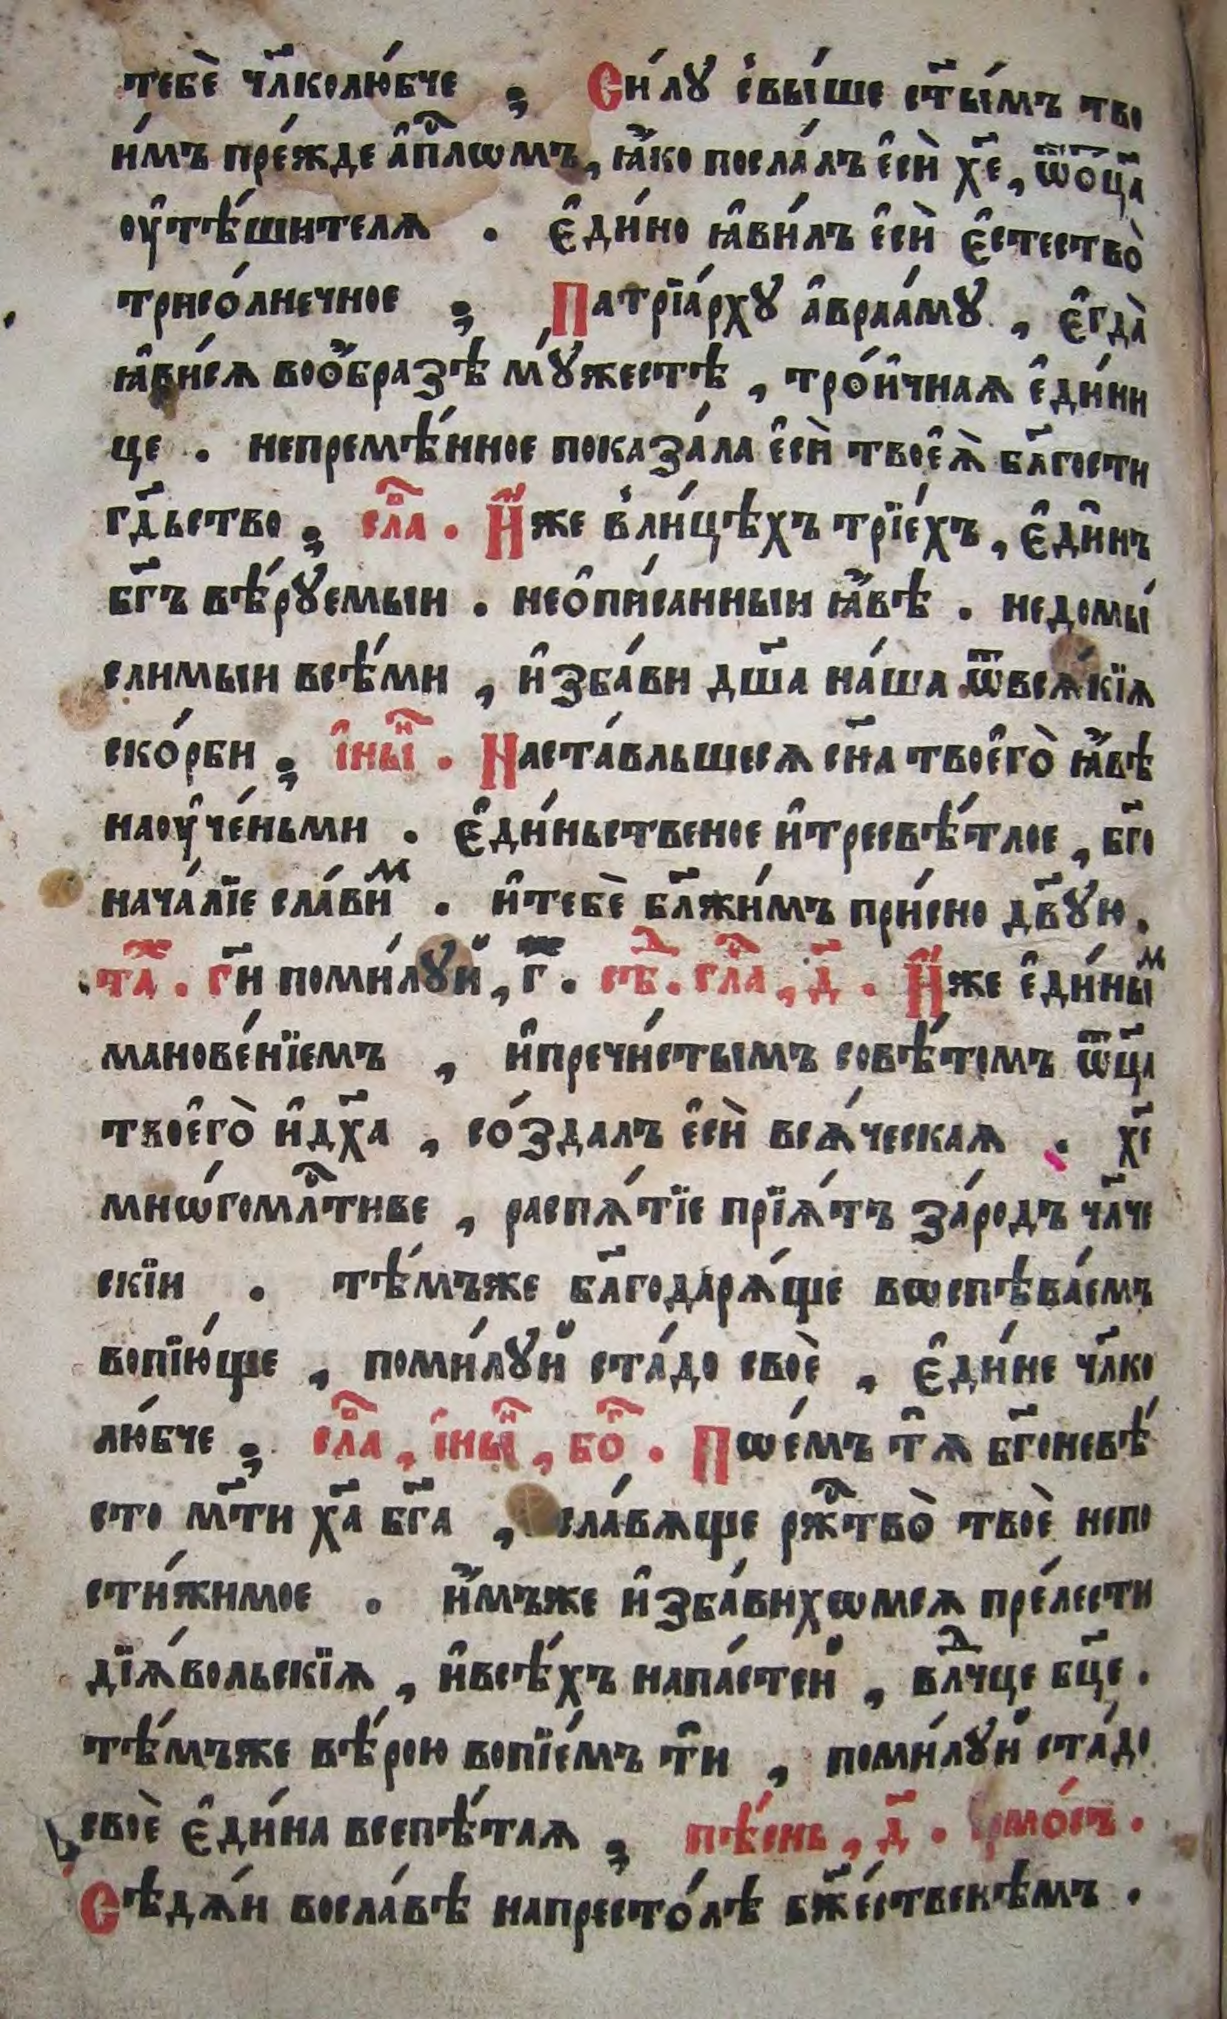 тебѐ чл҃колю́бче ; Си́лꙋ свы́ше ст҃ы́мъ тво
и́мъ пре́жде а҆пⷭ҇лѡмъ, ꙗ҆́ко посла́лъ є҆сѝ хⷭ҇е, ѿо҆ц҃а̀
оу҆тѣ́шителѧ . Є҆ди́но ꙗ҆ви́лъ є҆сѝ є҆стество̀
трисо́лнечное ; Патрїа́рхꙋ а҆враа́мꙋ , є҆гда̀
ꙗ҆ви́сѧ воо҆́бразѣ мꙋ́жестѣ , тро́и҆чнаѧ є҆ди́ни
це . непремѣ́нное показа́ла є҆сѝ твоеѧ̀ бл҃гости
гдⷭ҇ьство ; сла . И҆́же в̾ли́цѣхъ трїе́хъ , є҆ди́нъ
бг҃ъ вѣ́рꙋемыи . нео҆пи́санныи ꙗ҆́вѣ . недомы́
слимыи всѣ́ми , и҆зба́ви дш҃а на́ша ѿвсѧ́кїѧ
ско́рби ; і҆ны́н . Наста́вльшесѧ сн҃а твоегѡ̀ ꙗ҆́вѣ
наоу҆че́ньми . Є҆ди́ньственое и҆тресвѣ́тлое , бг҃о
нача́лїе сла́вим . и҆тебѐ бл҃жи́мъ при́сно дв҃ꙋю .
та҃ . гⷭ҇и поми́лꙋй , г҃ . сѣд . гла , д҃ . И҆́же є҆ди́ным
манове́нїемъ , и҆пречи́стымъ совѣ́томъ ѿц҃а
твоего̀ и҆дх҃а , со́здалъ є҆сѝ всѧ́ческаѧ . хⷭ҇е
мнѡ́гомлⷭ҇тиве , распѧ́тїе прїѧ́тъ за́родъ чл҃че
скїи . тѣ́мъже бл҃годарѧ́ще вѡспѣва́емъ
вопїю́ще , поми́лꙋй ста́до своѐ , є҆ди́не чл҃ко
лю́бче ; сла , і҆ны́н , бо . Пѡе́мъ тѧ̀ бг҃оневѣ́
сто мт҃и хⷭ҇а бг҃а , сла́вѧще ржⷭ҇тво̀ твоѐ непо
сти́жимое . и҆́мъже и҆зба́вихѡмсѧ пре́лести
дїѧ́вольскїѧ , и҆всѣ́хъ напа́стей , влⷣчце бц҃е .
тѣ́мъже вѣ́рою вопїе́мъ тѝ , поми́лꙋй ста́до
своѐ є҆ди́на вспѣ́таѧ ; пѣ́снь , д҃ . і҆рмо́съ .
Сѣдѧ́и восла́вѣ напресто́лѣ бж҃е́ственѣмъ .